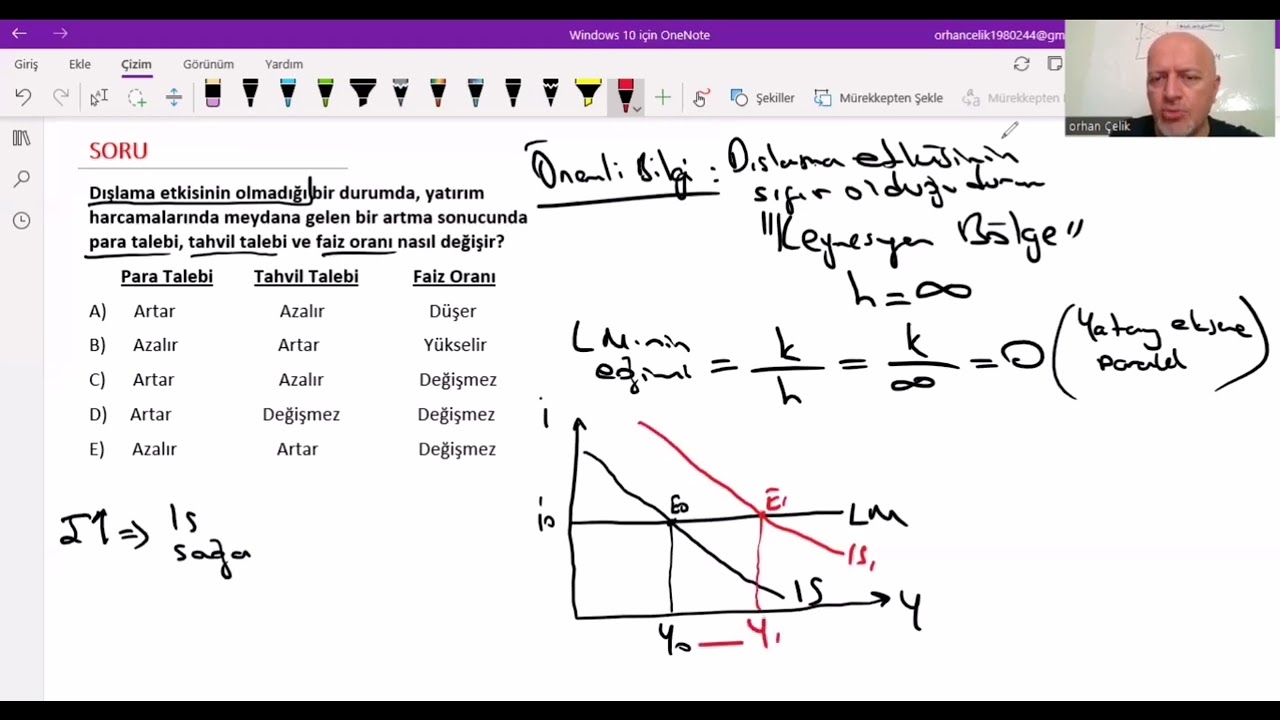 Windows 10 için OneNote
orhancelik1980244@gm
Giriş Ekle Çizim Görünüm Yardım
Şekiller Mürekkepten Şekle Mürekkepten
orhan Çelik
SORU
Dışlama etkisinin olmadığı bir durumda, yatırım
harcamalarında meydana gelen bir artma sonucunda
para talebi, tahvil talebi ve faiz oranı nasıl değişir?
Para Talebi Tahvil Talebi Faiz Oranı
A) Artar Azalır Düşer
B) Azalır Artar Yükselir
C) Artar Azalır Değişmez
D) Artar Değişmez Değişmez
E) Azalır Artar Değişmez
I↑ => IS
sağa
Önemli Bilgi : Dışlama etkisinin
sıfır olduğu durum
"Keynesyen Bölge"
h = ∞
LM'nin
eğimi = k/h = k/∞ = 0 (Yatay eksene
paralel)
i
i0 E0 E1 LM
IS1
IS
Y
Y0 — Y1